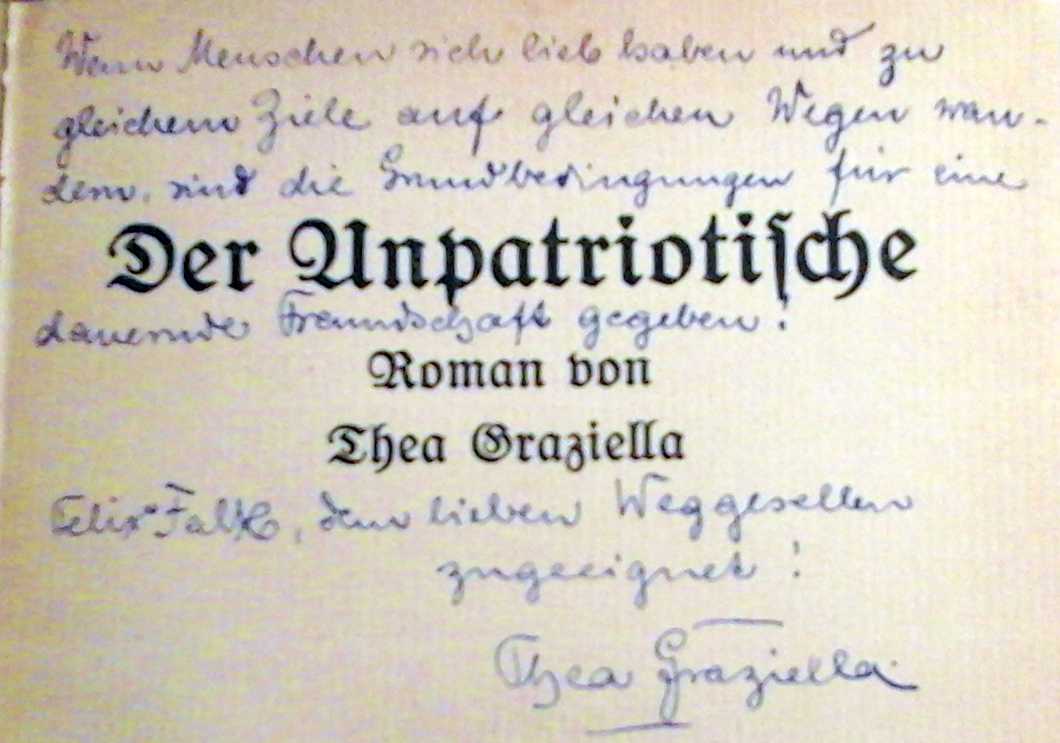 Wenn Menschen sich lieb haben und zu
gleichem Ziele auf gleichen Wegen wan-
dern, sind die Grundbedingungen für eine
Der Unpatriotiſche
dauernde Freundschaft gegeben!
Roman von
Thea Graziella
Felix Falk, dem lieben Weggesellen
zugeeignet!
Thea Graziella.